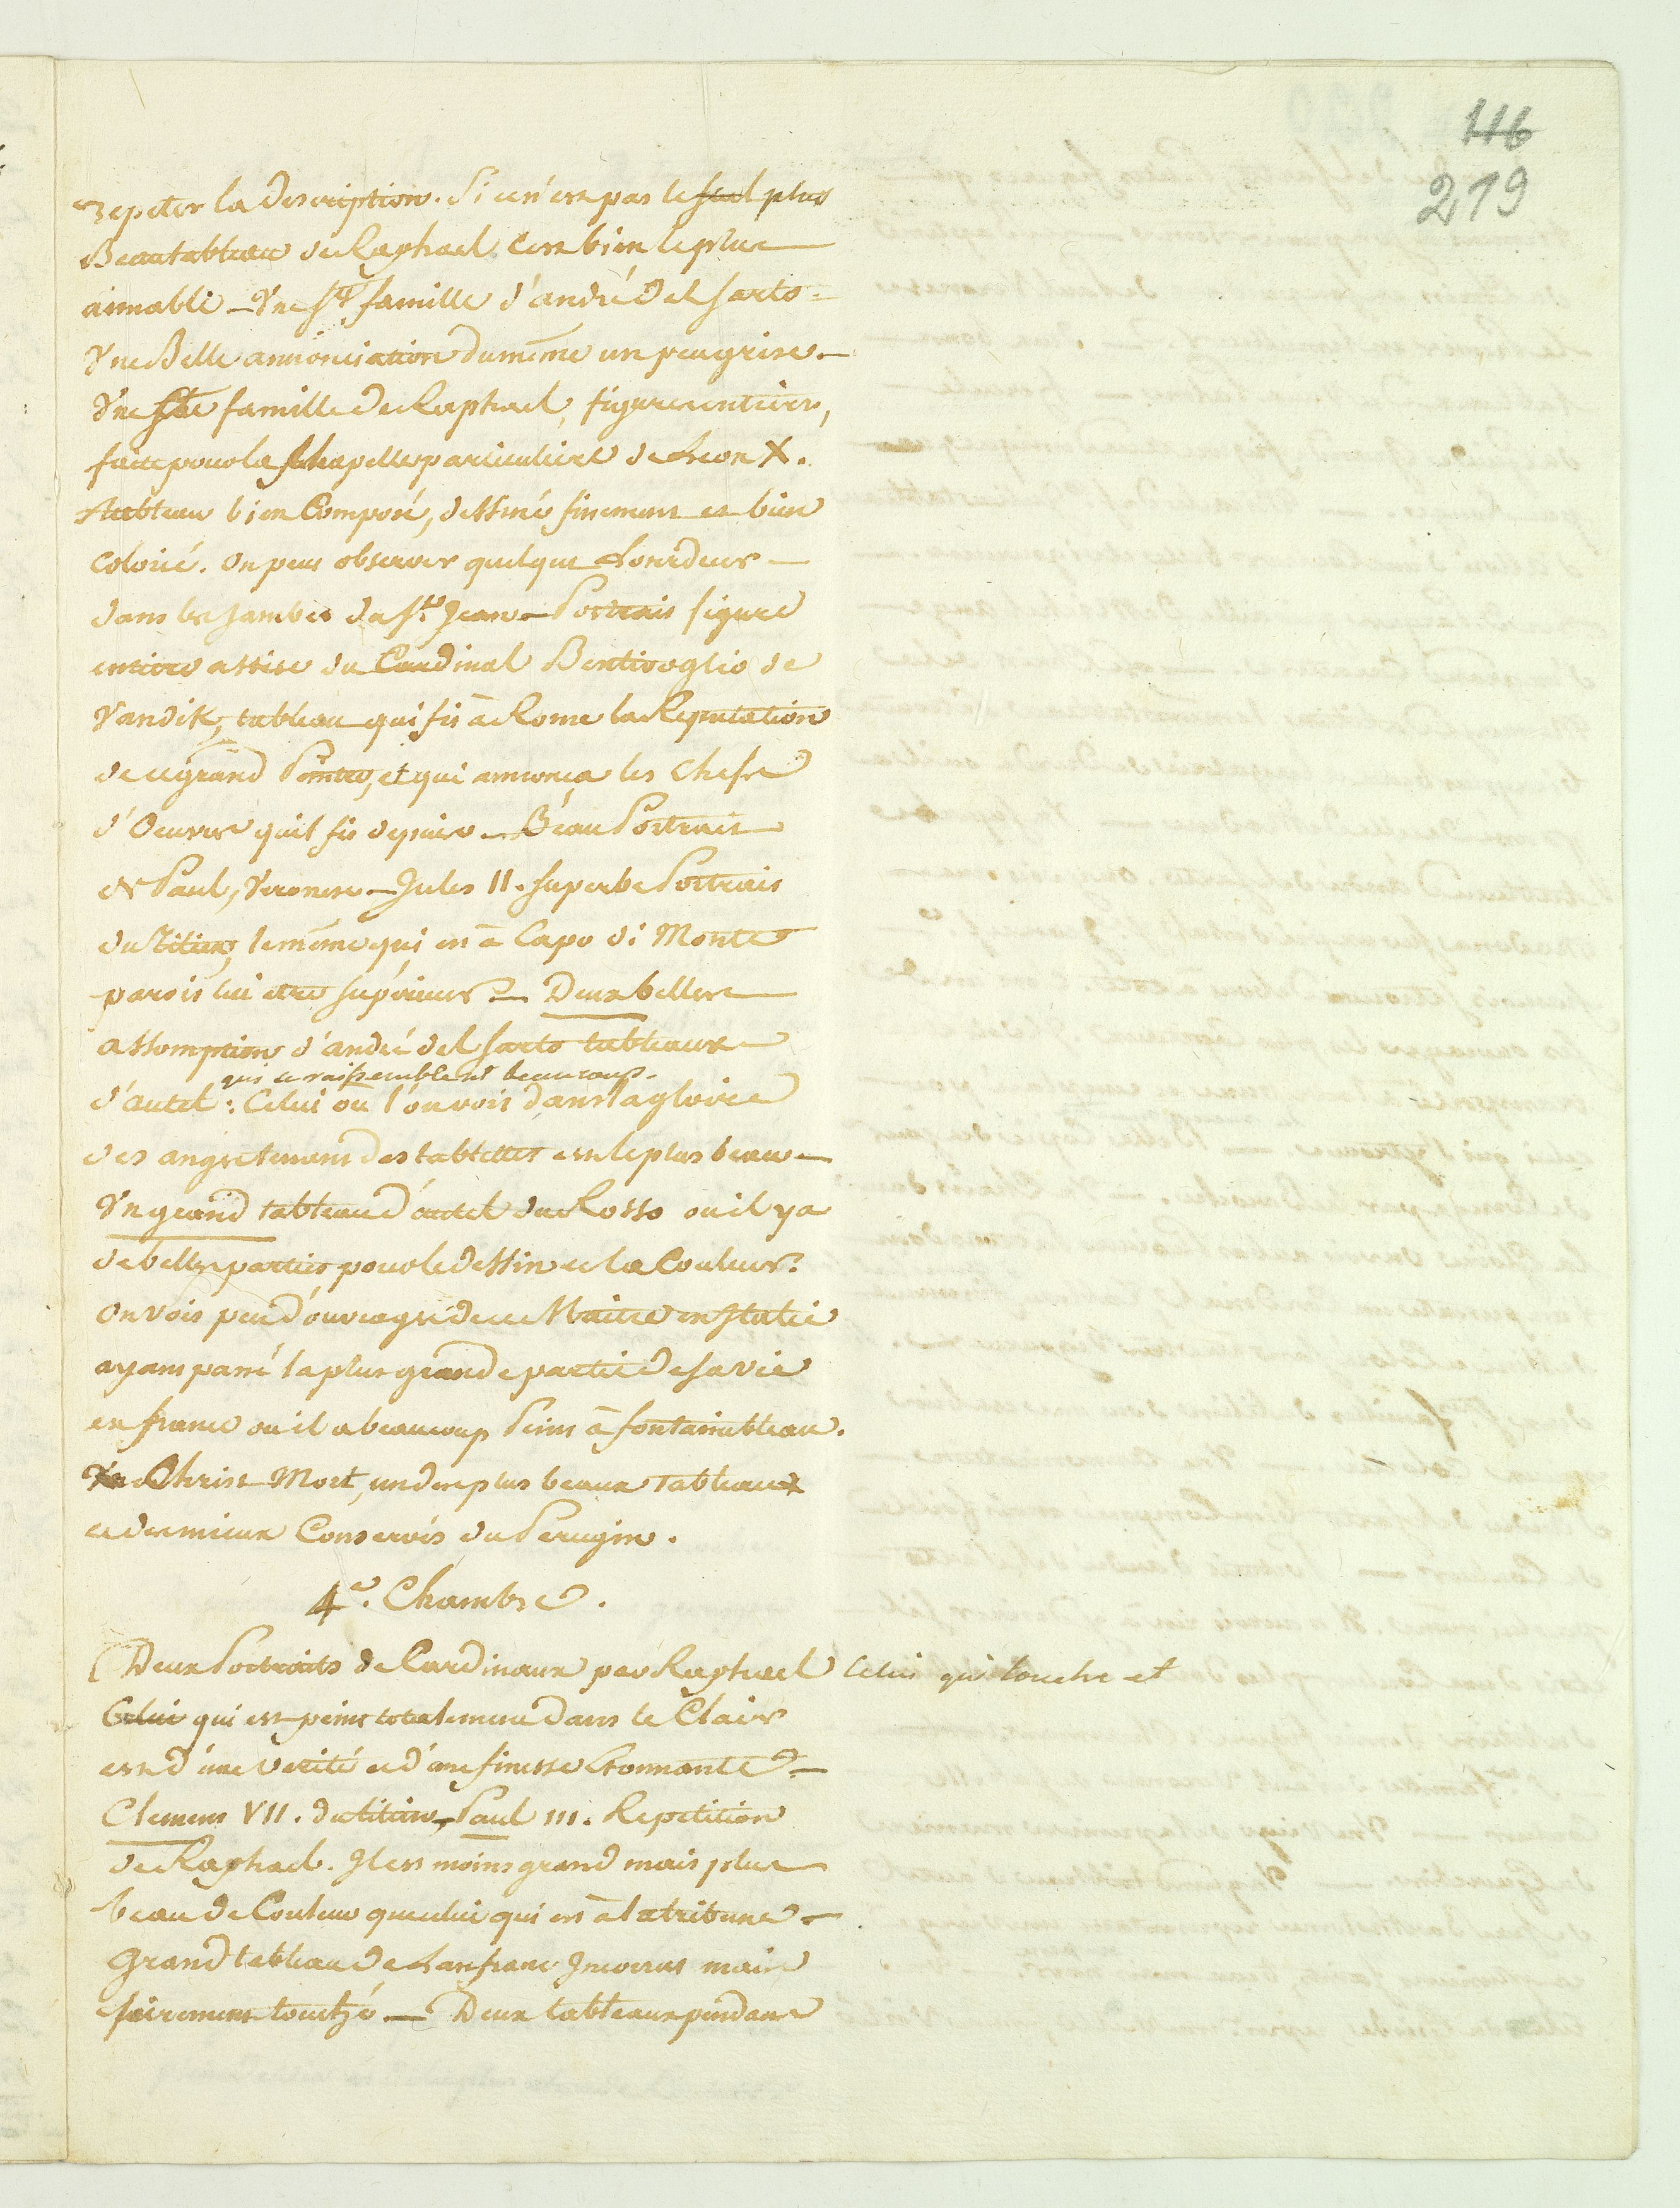 116
219
repeter la description. Si ce n'est pas le seul plus
Beau tableau de Raphael c'est bien le plus
aimable — Une Ste famille d'andré del Sarto —
Une Belle annonciation du même un peu grise. —
Une Ste famille de Raphael, figures entieres,
faite pour la Chapelle particuliere de Leon X.
Tableau bien Composé, dessiné finement et bien
Colorié. On peut observer quelque Lourdeur —
dans les jambes du St. Jean — Portrait figure
entiere assise du Cardinal Bentivoglio de
Vandik, tableau qui fit à Rome la Reputation
de ce grand Peintre, et qui annonça les Chefs
d'Oeuvre qu'il fit depuis — Beau Portrait
de Paul, Veronese — Jules II. superbe Portrait
du Titien, le même qui est à Capo di Monte
parois lui etre supérieur — Deux belles
assomption d'andré del Sarto tableaux
qui se raissemblent beaucoup.
d'autel : Celui où l'on voit dans la gloire
des anges tenant des tablettes est le plus beau —
Un grand tableau d'autel du Rosso ou il y a
de belles parties pour le dessin et la Couleur.
On voit peu d'ouvrages de ce Maitre en Italie
ayant passé la plus grande partie de sa vie
en france ou il a beaucoup Peint à fontainebleau.
Un Christ Mort, un des plus beaux Tableaux
et des mieux Conservés du Perugin.
4e. Chambre.
Deux Portraits de Cardinaux par Raphael Celui qui touche et
Celui qui est peint totalement dans le Clair
est d'une verité et d'une finesse Etonnante —
Clement VII. du titien — Paul III. Repetition
de Raphael. Il est moins grand mais plus
beau de Couleur que celui qui est à la tribune —
Grand tableau de Lanfranc Incorrect mais
fierement touché — Deux tableaux pendant